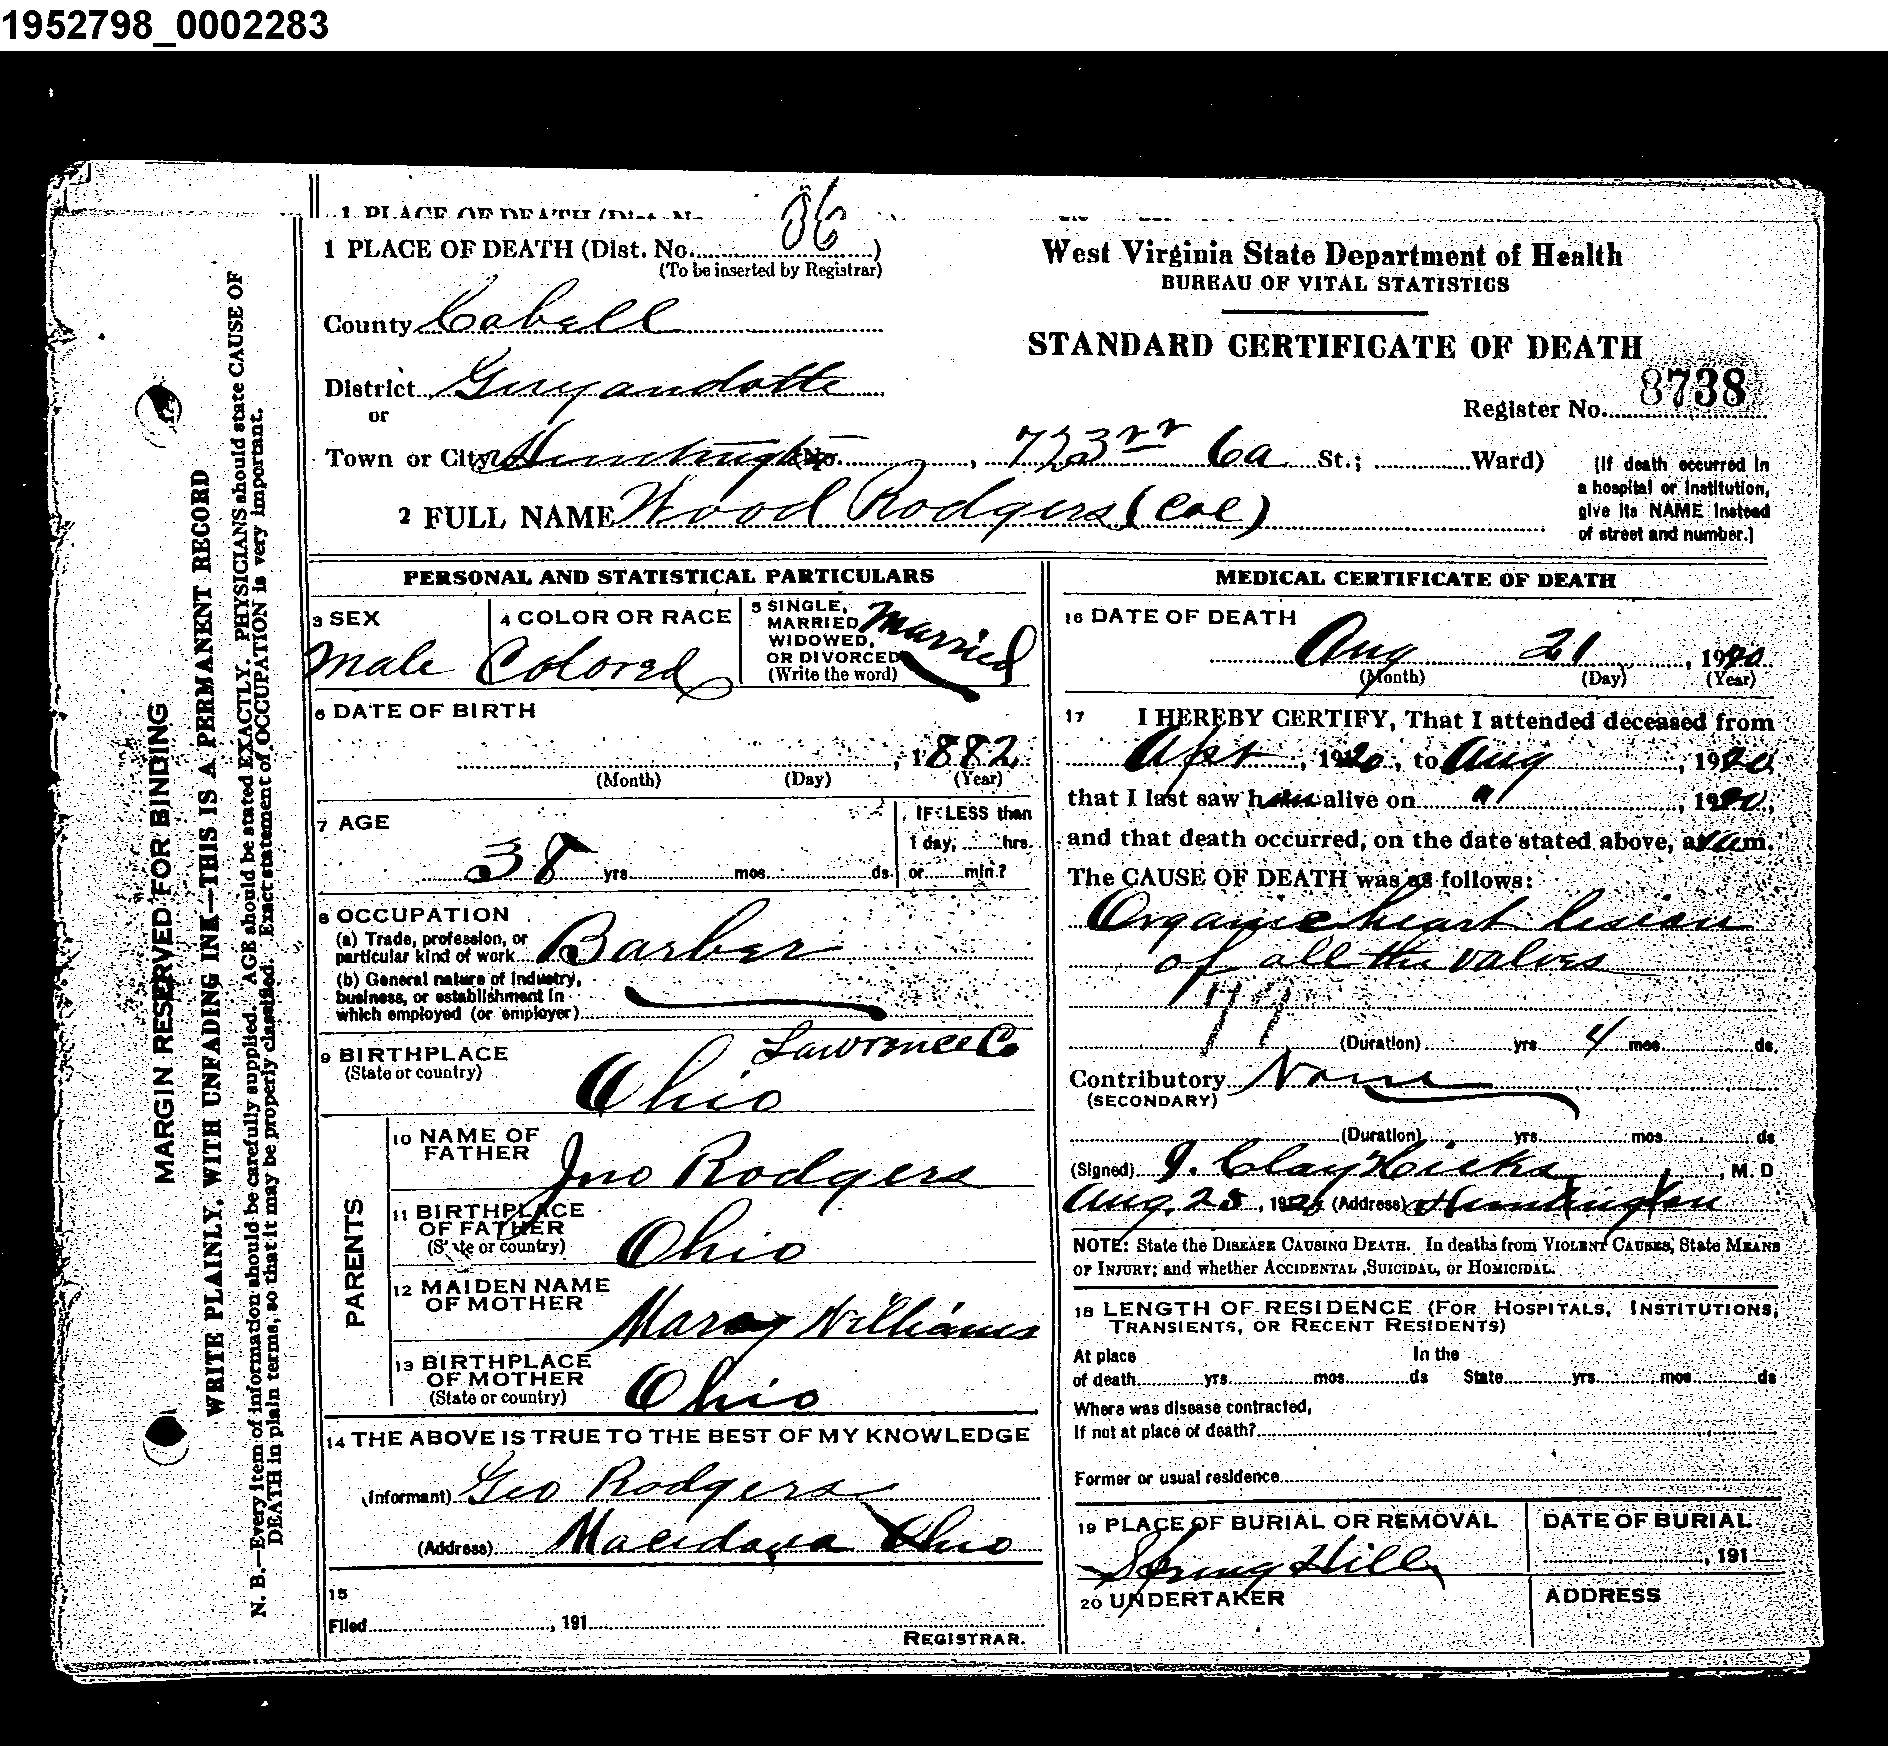 1952798_0002283
1 PLACE OF DEATH (Dist. No. 06
1 PLACE OF DEATH (Dist. No. )
(To be inserted by Registrar)
County Cabell
District Guyandotte
or
Town or City Huntington No. , 723rr 6a St.; Ward)
2 FULL NAME Wood Rodgers (Col)
West Virginia State Department of Health
BUREAU OF VITAL STATISTICS
STANDARD CERTIFICATE OF DEATH
Register No. 8738
(If death occurred in
a hospital or institution,
give its NAME instead
of street and number.]
MARGIN RESERVED FOR BINDING
WRITE PLAINLY, WITH UNFADING INK—THIS IS A PERMANENT RECORD
N. B.—Every item of information should be carefully supplied. AGE should be stated EXACTLY. PHYSICIANS should state CAUSE OF
DEATH in plain terms, so that it may be properly classified. Exact statement of OCCUPATION is very important.
PERSONAL AND STATISTICAL PARTICULARS
3 SEX
Male
4 COLOR OR RACE
Colored
5 SINGLE,
MARRIED,
WIDOWED,
OR DIVORCED
(Write the word)
Married
6 DATE OF BIRTH
, 1882
(Month) (Day) (Year)
7 AGE
38 yrs. mos. ds.
IF LESS than
1 day, hrs.
or min.?
8 OCCUPATION
(a) Trade, profession, or
particular kind of work Barber
(b) General nature of industry,
business, or establishment in
which employed (or employer)
9 BIRTHPLACE
(State or country)
Lawrence Co
Ohio
PARENTS
10 NAME OF
FATHER Jno Rodgers
11 BIRTHPLACE
OF FATHER
(State or country) Ohio
12 MAIDEN NAME
OF MOTHER Mary Williams
13 BIRTHPLACE
OF MOTHER
(State or country) Ohio
14 THE ABOVE IS TRUE TO THE BEST OF MY KNOWLEDGE
(Informant) Geo Rodgers
(Address) Macidova Ohio
15
Filed , 191
REGISTRAR.
MEDICAL CERTIFICATE OF DEATH
16 DATE OF DEATH
Aug 21 , 1920
(Month) (Day) (Year)
17 I HEREBY CERTIFY, That I attended deceased from
Apr , 1920, to Aug , 1920,
that I last saw him alive on " , 1920,
and that death occurred, on the date stated above, at m.
The CAUSE OF DEATH was as follows:
Organic heart lesion
of all the valves
79
(Duration) yrs. 4 mos. ds.
Contributory None
(SECONDARY)
(Duration) yrs. mos. ds
(Signed) J. Clay Hicks , M. D
Aug. 25, 1920 (Address) Huntington
NOTE: State the DISEASE CAUSING DEATH. In deaths from VIOLENT CAUSES, State MEANS
OF INJURY; and whether ACCIDENTAL, SUICIDAL, or HOMICIDAL.
18 LENGTH OF RESIDENCE (FOR HOSPITALS, INSTITUTIONS,
TRANSIENTS, OR RECENT RESIDENTS)
At place In the
of death yrs. mos. ds State yrs. mos. ds
Where was disease contracted,
If not at place of death?
Former or usual residence
19 PLACE OF BURIAL OR REMOVAL
Spring Hill
DATE OF BURIAL
, 191
20 UNDERTAKER
ADDRESS